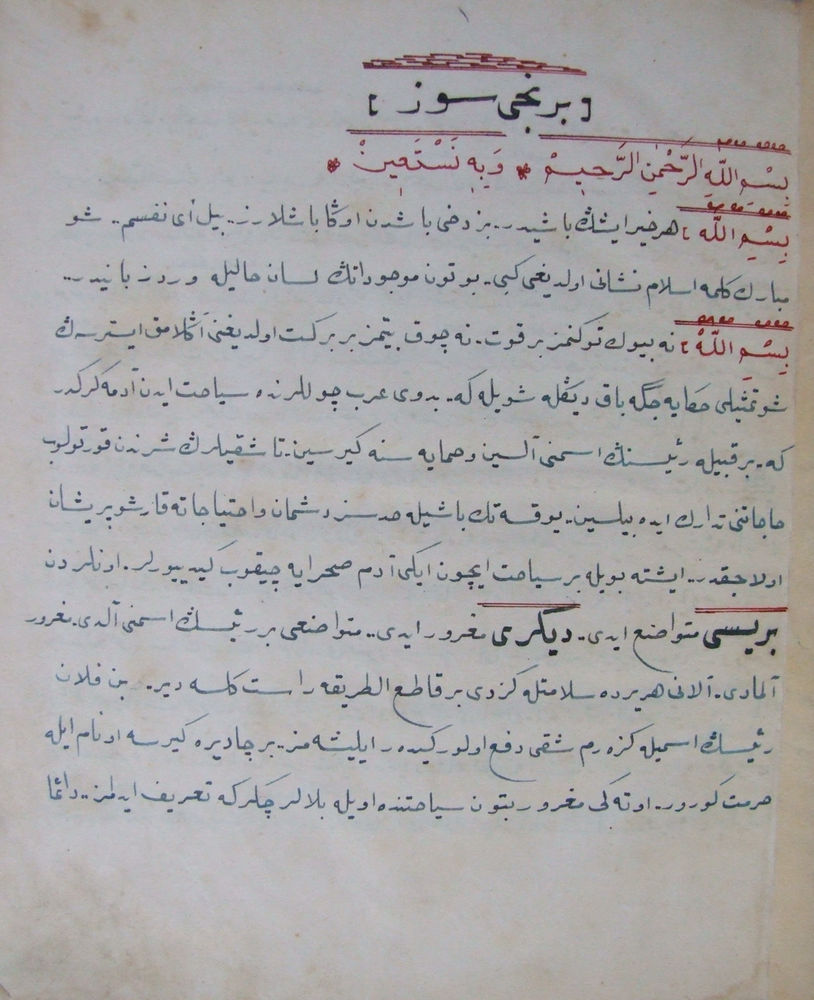 [ برنجی سوز ]
بِسْمِ اللّٰهِ الرَّحْمٰنِ الرَّحِيمِ * وَبِهِ نَسْتَعِينُ *
بِسْمِ اللّٰه ] هر خیرایشڭ باشیدر.. بز دخی باشدن اوڭا باشلارز.. بیل أی نفسم.. شو
مبارك كلمه اسلام نشانی اولدیغی كبی.. بوتون موجوداتڭ لسان حالیله ورد زبانیدر..
بِسْمِ اللّٰه ] نه بیوك توكنمز بر قوت.. نه چوق بیتمز بر بركت اولدیغنی أڭلامق ایترسه‌ڭ
شو تمثیلی حكایه‌جگه باق دیڭله شویله كه.. بدوی عرب چوللرنده سیاحت ایدن آدمه كركدر
كه.. بر قبیله رئیسنڭ اسمنی آلسین وحمایه سنه كیرسین.. تا شقیلرڭ شرندن قورتولوب
حاجاتنی تدارك ایده‌بیلسین.. یوقسه تك باشیله حدسز دشمان واحتیاجاته قارشو پریشان
اولاجقدر.. ایشته بویله بر سیاحت ایچون ایكی آدم صحرایه چیقوب كیدییورلر.. اونلردن
بریسی متواضع ایدی.. دیگری مغرور ایدی.. متواضعی بر رئیسڭ اسمنی آلدی.. مغرور
آلمادی.. آلانی هر یرده سلامتله گزدی بر قاطع الطریقه راست كلسه دیر.. بن فلان
رئیسڭ اسمیله كزه‌رم شقی دفع اولور كیده‌ر ایلیشه‌مز.. بر چادیره كیرسه او نام ایله
حرمت كورور.. اوته‌كی مغرور بتون سیاحتنده اویله بلالر چكركه تعریف ایدلمز.. دائما